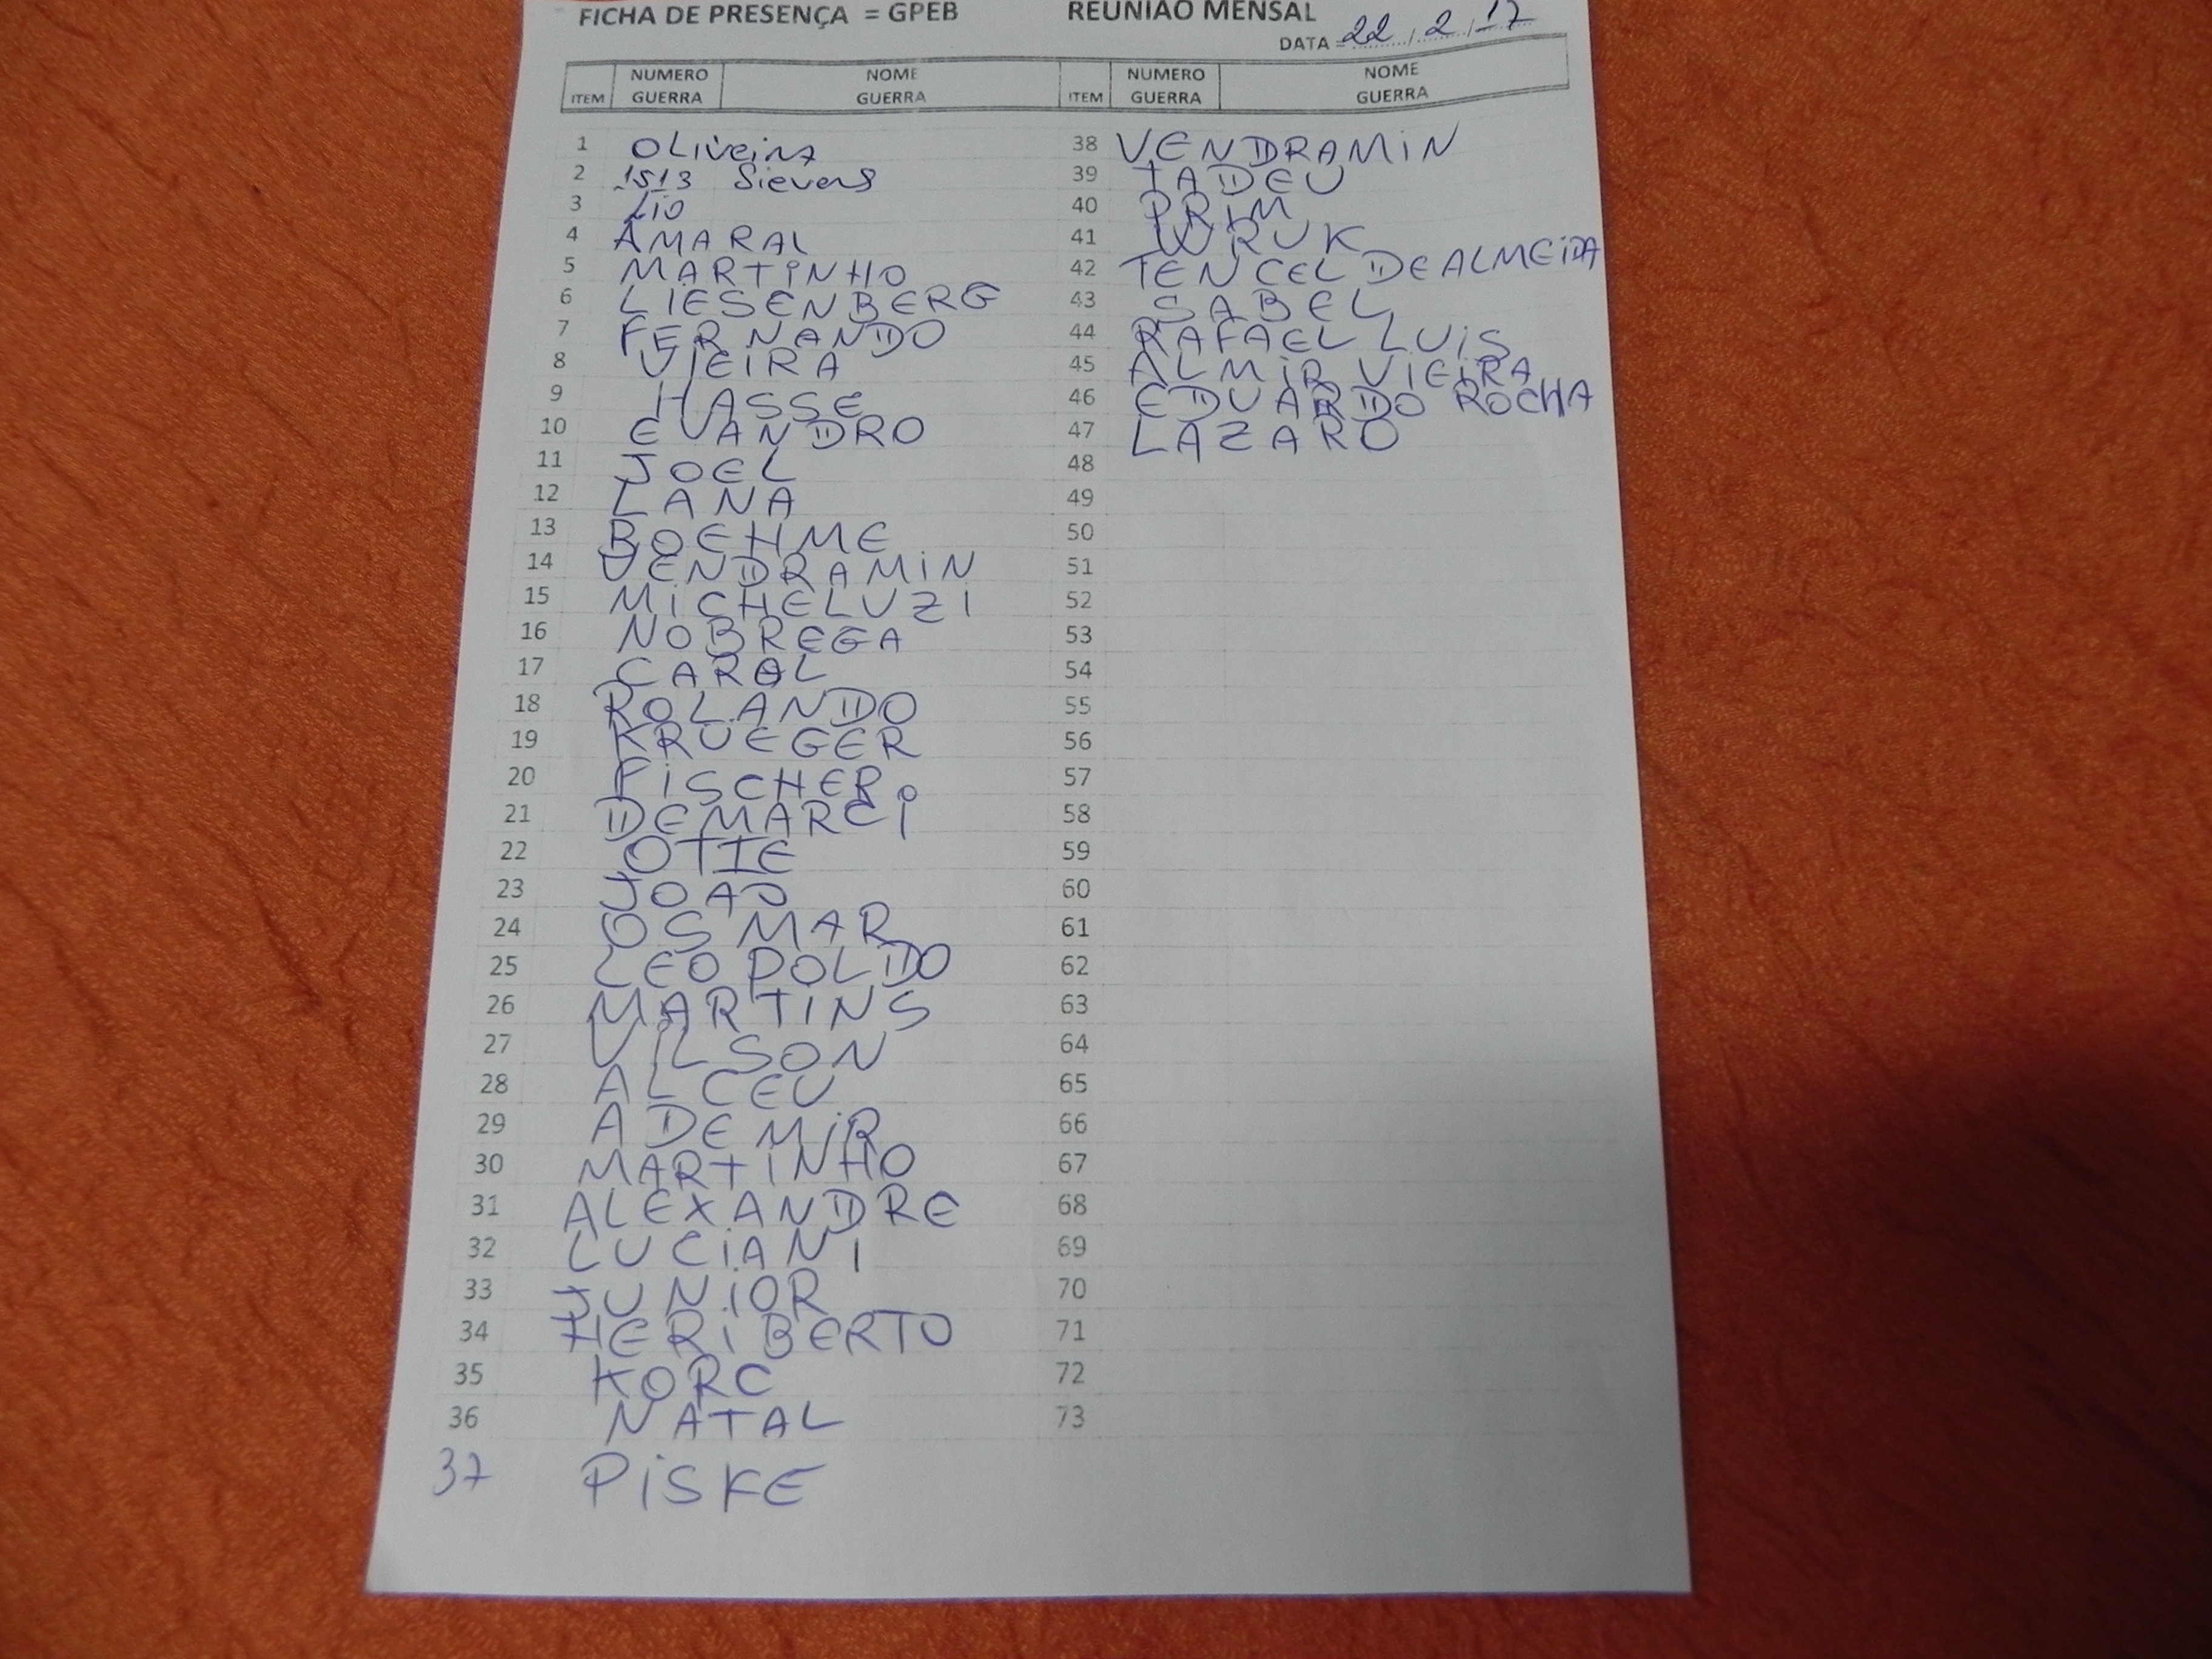 FICHA DE PRESENÇA = GPEB REUNIÃO MENSAL
DATA = 22 / 2 / 17
ITEM NUMERO GUERRA NOME GUERRA ITEM NUMERO GUERRA NOME GUERRA
1 OLiveira
2 1513 Sievers
3 LIO
4 AMARAL
5 MARTiNHO
6 LIESENBERG
7 FERNANDO
8 VIEIRA
9 HASSE
10 EVANDRO
11 JOEL
12 LANA
13 BOEHME
14 VENDRAMiN
15 MiCHELUZI
16 NOBREGA
17 CARAL
18 ROLANDO
19 KRUEGER
20 FiSCHER
21 DEMARCi
22 OTTE
23 JOAO
24 OSMAR
25 LEOPOLDO
26 MARTINS
27 ViLSON
28 ALCEU
29 ADEMiR
30 MARTiNHO
31 ALEXANDRE
32 LUCiANI
33 JUNiOR
34 HERiBERTO
35 KORC
36 NATAL
37 PiSKE
38 VENDRAMiN
39 TADEU
40 PRiM
41 WRUK
42 TEN CEL DE ALMEiDA
43 SABEL
44 RAFAEL LUiS
45 ALMiR VIEiRA
46 EDUARDO ROCHA
47 LAZARO
48
49
50
51
52
53
54
55
56
57
58
59
60
61
62
63
64
65
66
67
68
69
70
71
72
73